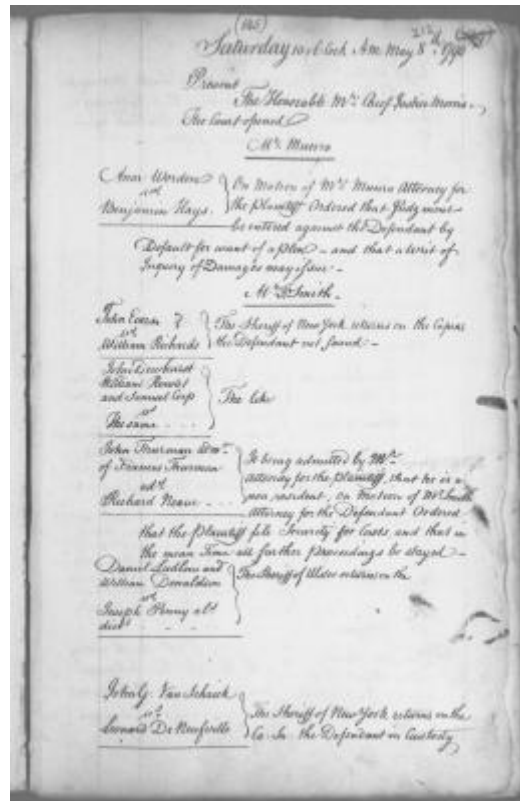 (185)
212
Saturday 10 o'Clock A.m. May 8th 1790
Present
The Honorable Mr. Chief Justice Morris
The Court opened
Mr. Munro
Anne Worden
vs.
Benjamin Hays.
On Motion of Mr. Munro Attorney for
the Plaintiff Ordered that Judgment
be entered against the Defendant by
Default for want of a plea - and that a Writ of
Inquiry of Damages may issue -
Mr. Smith.
John
vs.
William Richards
The Sheriff of New York returns on the Capias
the Defendant not found -
John Dewhurst
William
and Samuel Corp
vs.
The same
The like
John Thurman Admr.
of Francis Thurman
ads.
Richard
It being admitted by Mr.
Attorney for the plaintiff, that he is a
non resident, on motion of Mr. Smith
Attorney for the Defendant Ordered
that the plaintiff file Security for Costs, and that in
the mean Time all further Proceedings be stayed -
Daniel Ludlow and
William Donaldson
vs.
Joseph Penny als.
dict.
The Sheriff of Ulster returns on the
John G. Van Schaick
vs.
Leonard De Neufville
The Sheriff of New York returns on the
Ca. Sa. the Defendant in Custody